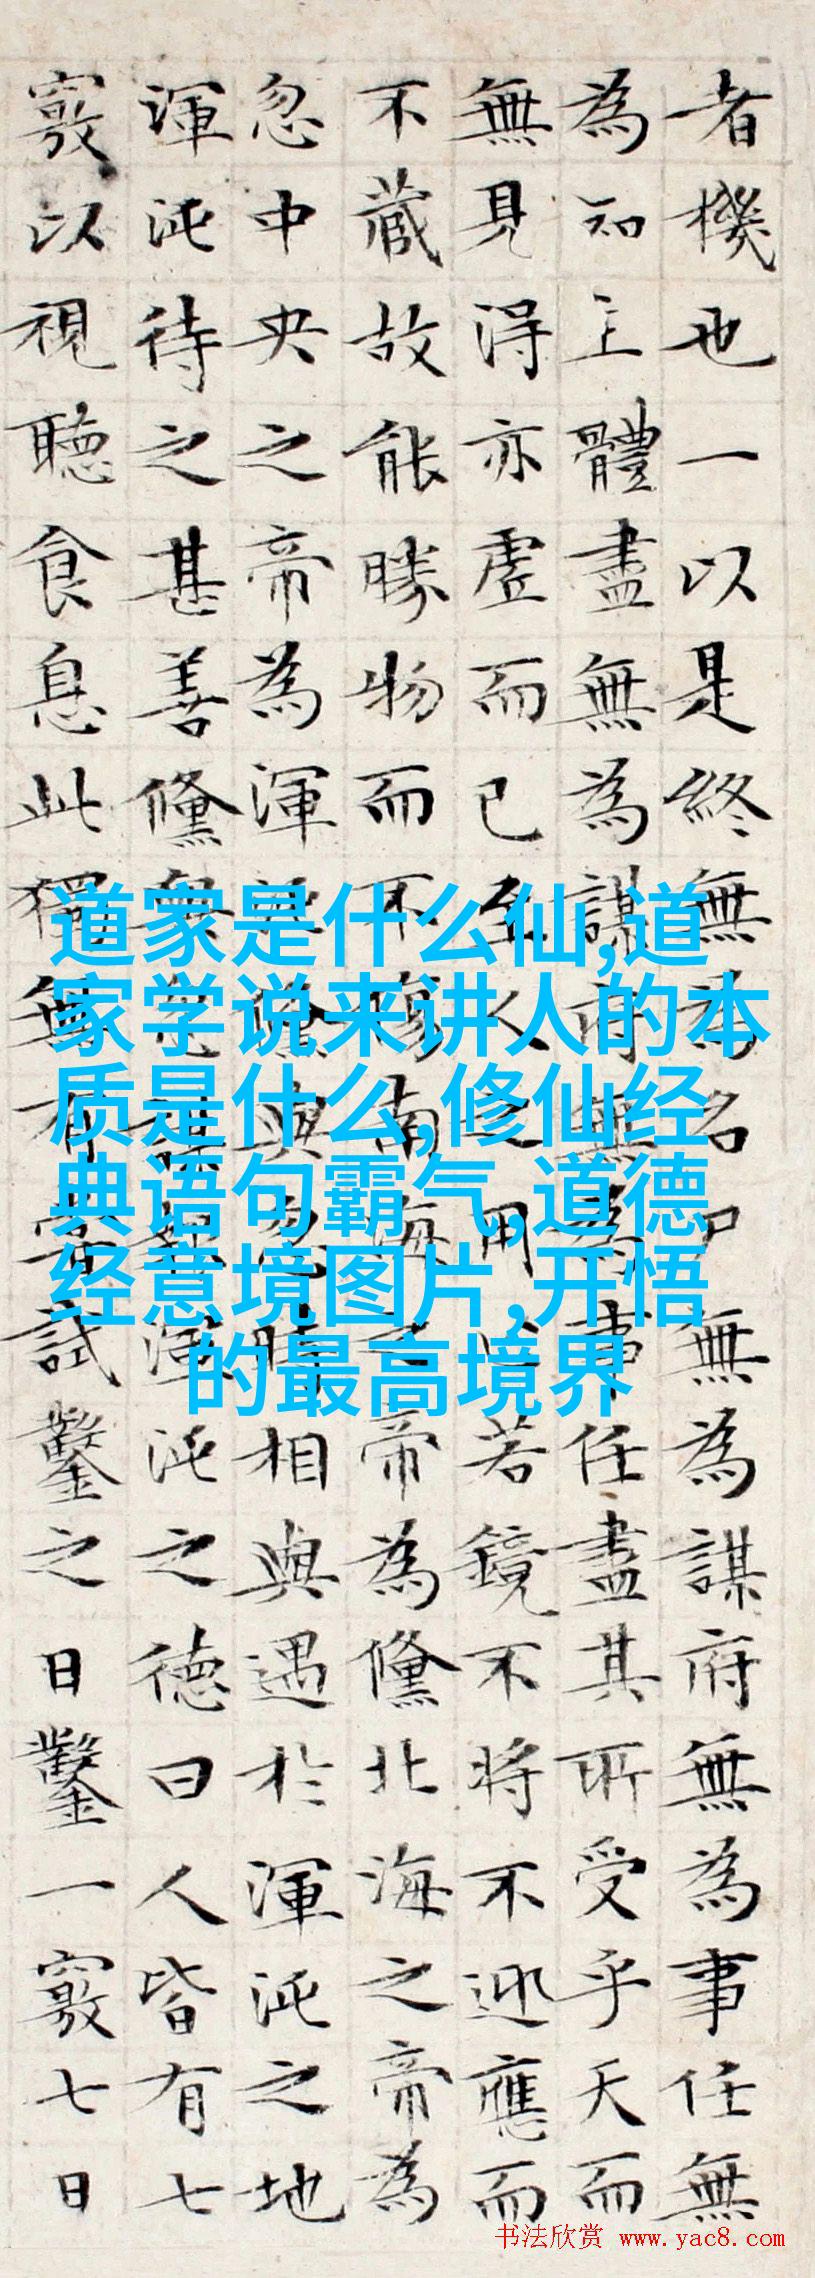 者機也一以是終無為名尸無為謀府無為事任無
為知主體盡無為謀府無為事任盡其所受乎天而
無見得亦虛而已至人之用心若鏡不將不迎應而
不藏故能勝物而不傷南海之帝為儵北海之帝為
忽中央之帝為渾沌儵與忽時相與遇於渾沌之地
渾沌待之甚善儵與忽謀報渾沌之德曰人皆有七
竅以視聽食息此獨無有嘗試鑿之日鑿一竅七日
道家是什么仙,道
家学说来讲人的本
质是什么,修仙经
典语句霸气,道德
经意境图片,开悟
的最高境界
书法欣赏 www.yac8.com